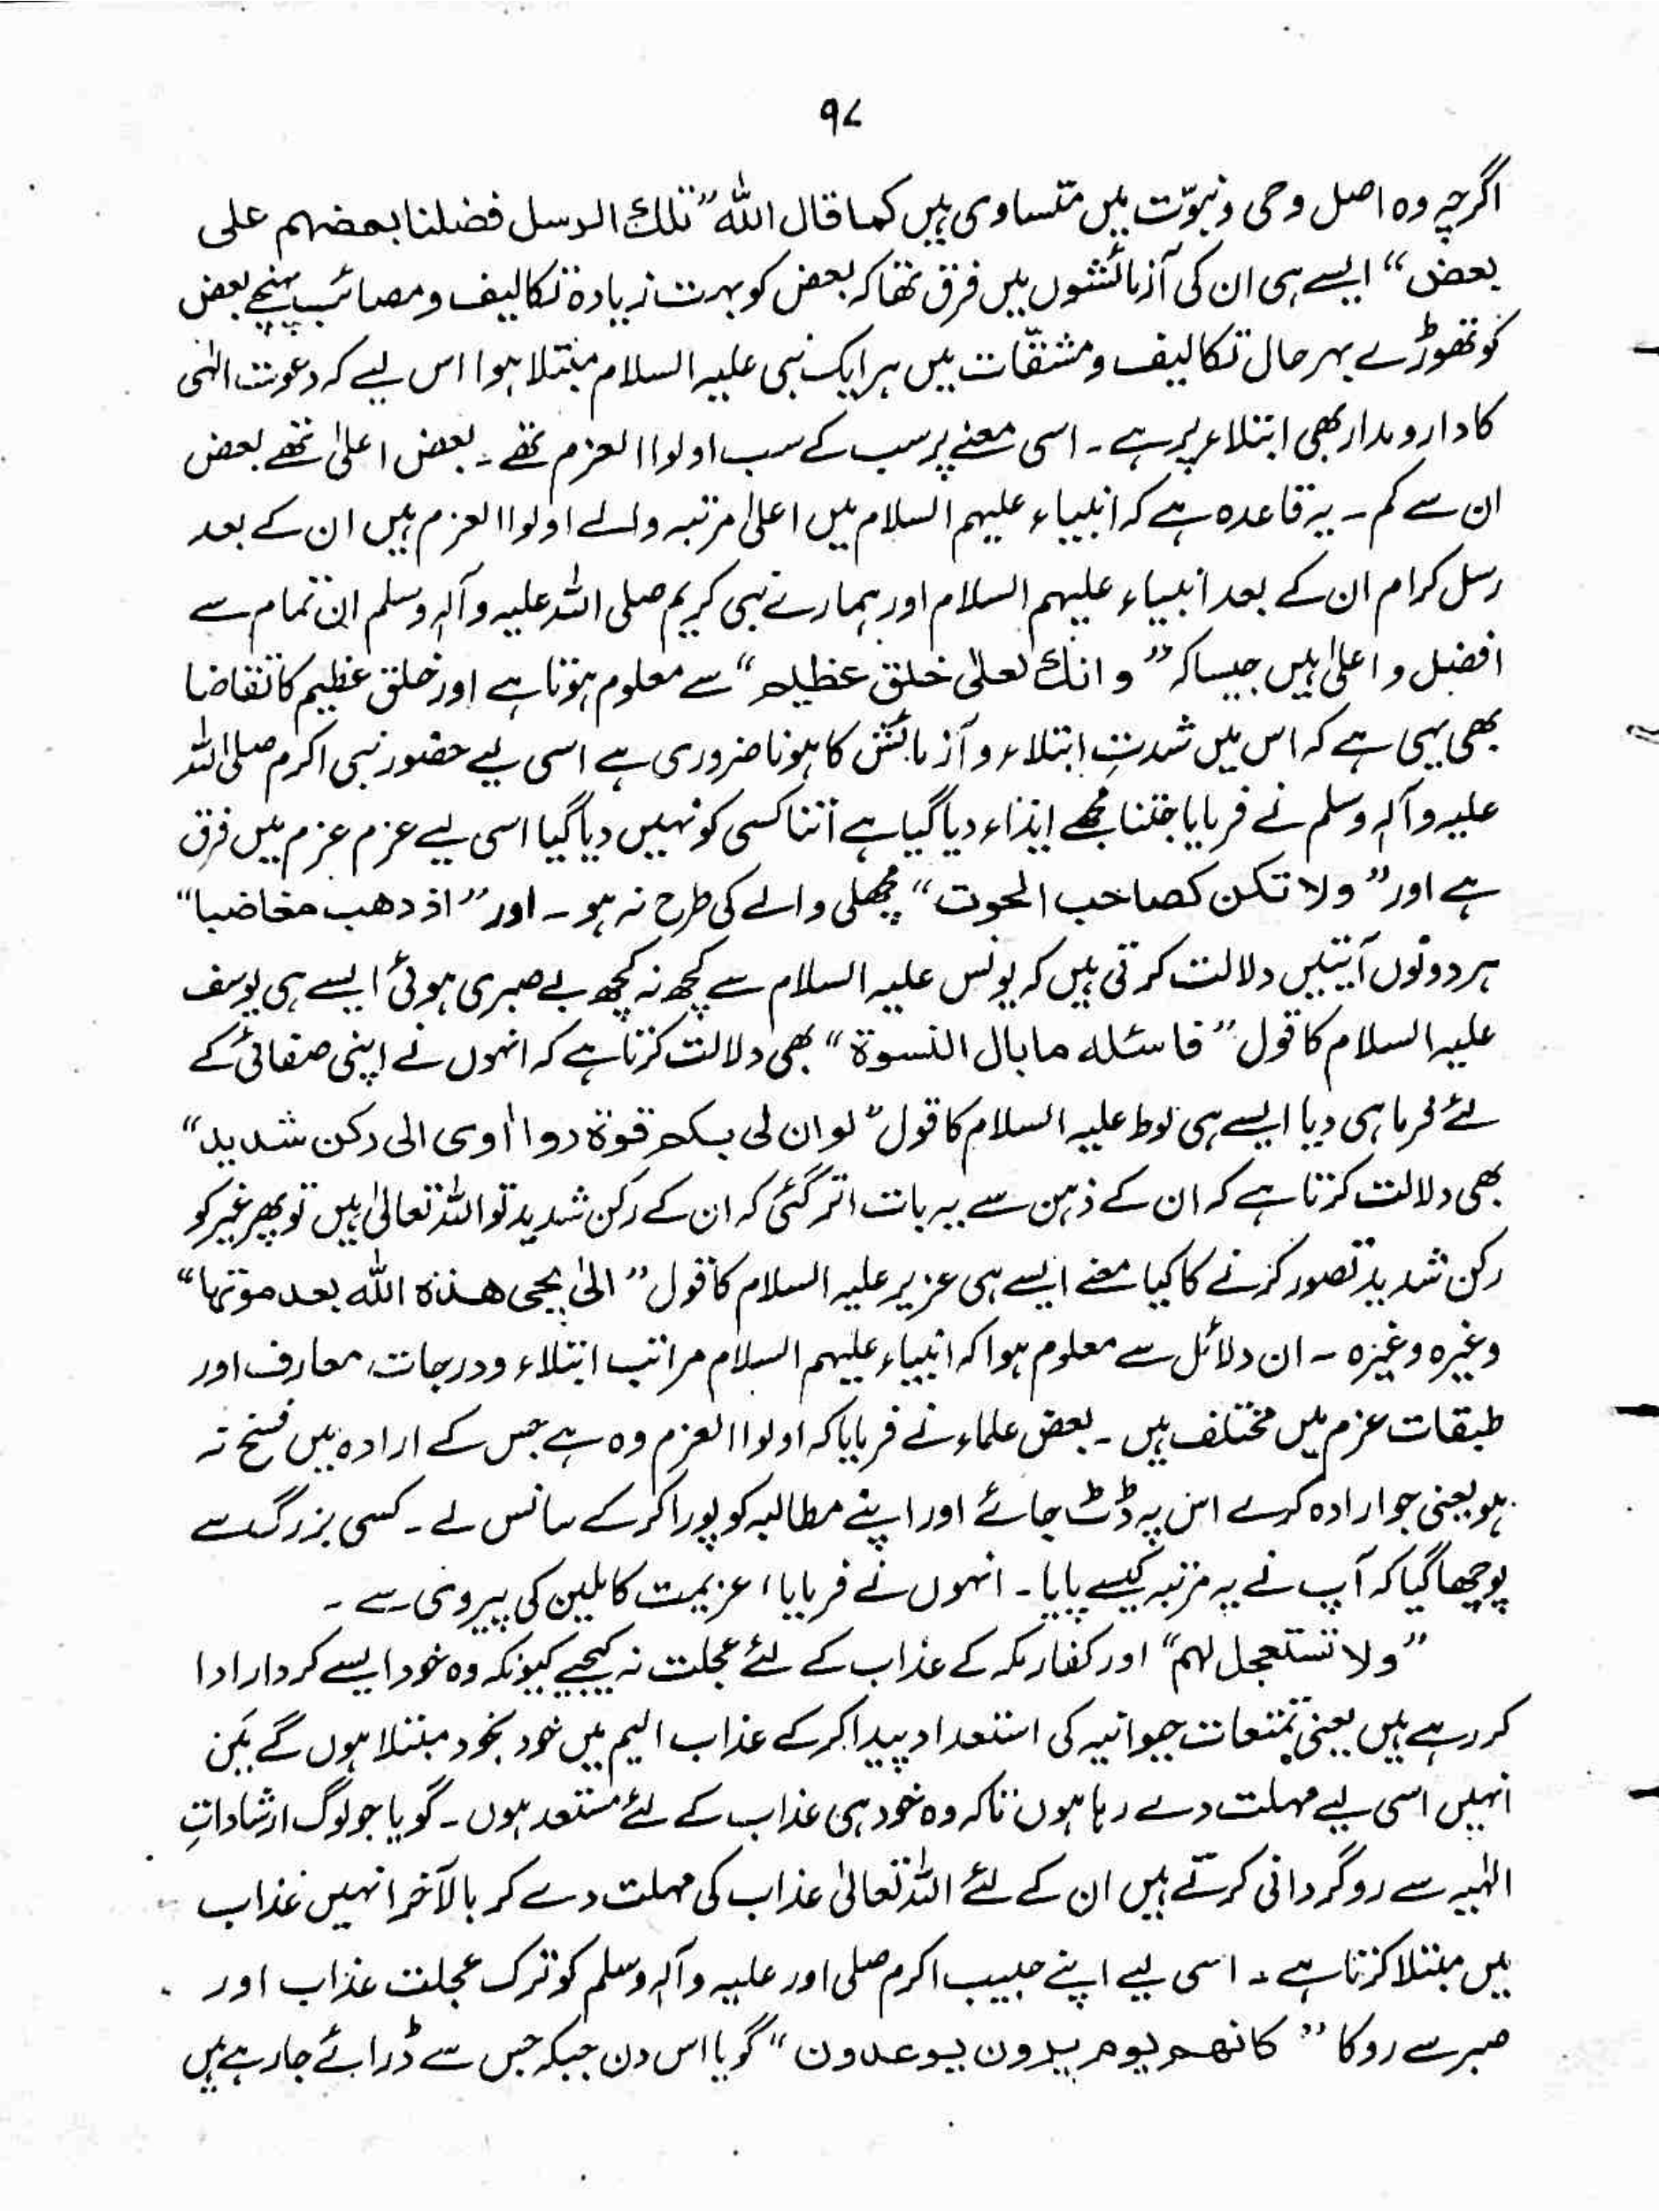 ۹۷
اگرچہ وہ اصل وحی و نبوّت میں متساوی ہیں کما قال اللہ ”تلك الرسل فضلنا بعضہم علی
بعض“ ایسے ہی ان کی آزمائشوں میں فرق تھا کہ بعض کو بہت زیادہ تکالیف و مصائب پہنچے بعض
کو تھوڑے بہر حال تکالیف و مشقّات میں ہر ایک نبی علیہ السلام مبتلا ہوا اس لیے کہ دعوت الٰہی
کا دار و مدار بھی ابتلاء پر ہے۔ اسی معنے پر سب کے سب اولوا العزم تھے۔ بعض اعلیٰ تھے بعض
ان سے کم۔ یہ قاعدہ ہے کہ انبیاء علیہم السلام میں اعلیٰ مرتبہ والے اولوا العزم ہیں ان کے بعد
رسل کرام ان کے بعد انبیاء علیہم السلام اور ہمارے نبی کریم صلی اللہ علیہ وآلہ وسلم ان تمام سے
افضل و اعلیٰ ہیں جیسا کہ ”و انك لعلیٰ خلق عظیم“ سے معلوم ہوتا ہے اور خلق عظیم کا تقاضا
بھی یہی ہے کہ اس میں شدتِ ابتلاء و آزمائش کا ہونا ضروری ہے اسی لیے حضور نبی اکرم صلی اللہ
علیہ وآلہ وسلم نے فرمایا جتنا مجھے ایذاء دیا گیا ہے اتنا کسی کو نہیں دیا گیا اسی لیے عزم عزم میں فرق
ہے اور ”ولا تکن کصاحب الحوت“ مچھلی والے کی طرح نہ ہو۔ اور ”اذ دھب مغاضبا“
ہر دونوں آیتیں دلالت کرتی ہیں کہ یونس علیہ السلام سے کچھ نہ کچھ بے صبری ہوئی ایسے ہی یوسف
علیہ السلام کا قول ”فاسئلہ ما بال النسوة“ بھی دلالت کرتا ہے کہ انہوں نے اپنی صفائی کے
لئے فرما ہی دیا ایسے ہی لوط علیہ السلام کا قول ”لو ان لی بکم قوة روا اٰوی الی رکن شدید“
بھی دلالت کرتا ہے کہ ان کے ذہن سے یہ بات اتر گئی کہ ان کے رکن شدید تو اللہ تعالیٰ ہیں تو پھر غیر کو
رکن شدید تصور کرنے کا کیا معنے ایسے ہی عزیر علیہ السلام کا قول ”الیٰ یحی ھذہ اللہ بعد موتہا“
وغیرہ وغیرہ۔ ان دلائل سے معلوم ہوا کہ انبیاء علیہم السلام مراتب ابتلاء و درجات معارف اور
طبقات عزم میں مختلف ہیں۔ بعض علماء نے فرمایا کہ اولوا العزم وہ ہے جس کے ارادہ میں فسخ نہ
ہو یعنی جو ارادہ کرے اس پہ ڈٹ جائے اور اپنے مطالبہ کو پورا کر کے سانس لے۔ کسی بزرگ سے
پوچھا گیا کہ آپ نے یہ مرتبہ کیسے پایا۔ انہوں نے فرمایا، عزیمت کاملین کی پیروی سے۔
”ولا تستعجل لہم“ اور کفار مکہ کے عذاب کے لئے عجلت نہ کیجیے کیونکہ وہ خود ایسے کردار ادا
کر رہے ہیں یعنی تمتعات حیوانیہ کی استعداد پیدا کر کے عذاب الیم میں خود بخود مبتلا ہوں گے میں
انہیں اسی لیے مہلت دے رہا ہوں تاکہ وہ خود ہی عذاب کے لئے مستعد ہوں۔ گویا جو لوگ ارشاداتِ
الٰہیہ سے روگردانی کرتے ہیں ان کے لئے اللہ تعالیٰ عذاب کی مہلت دے کر بالآخر انہیں عذاب
میں مبتلا کرتا ہے۔ اسی لیے اپنے حبیب اکرم صلی اور علیہ وآلہ وسلم کو ترک عجلت عذاب اور
صبر سے روکا ”کانھم یوم یرون یوعدون“ گویا اس دن جبکہ جس سے ڈرائے جا رہے ہیں